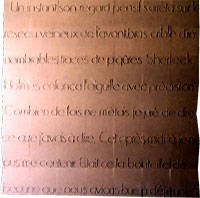 Un instant son regard pensif s'arrêta sur le
réseau veineux de l'avant-bras criblé d'in
nombrables traces de piqûres. Sherlock
Holmes enfonça l'aiguille avec précision.
Combien de fois ne m'étais je juré de dire
ce que j'avais à dire. Cet après midi là, je ne
pus me contenir. Était ce la bouteille de
beaune que nous avions bue au déjeuner